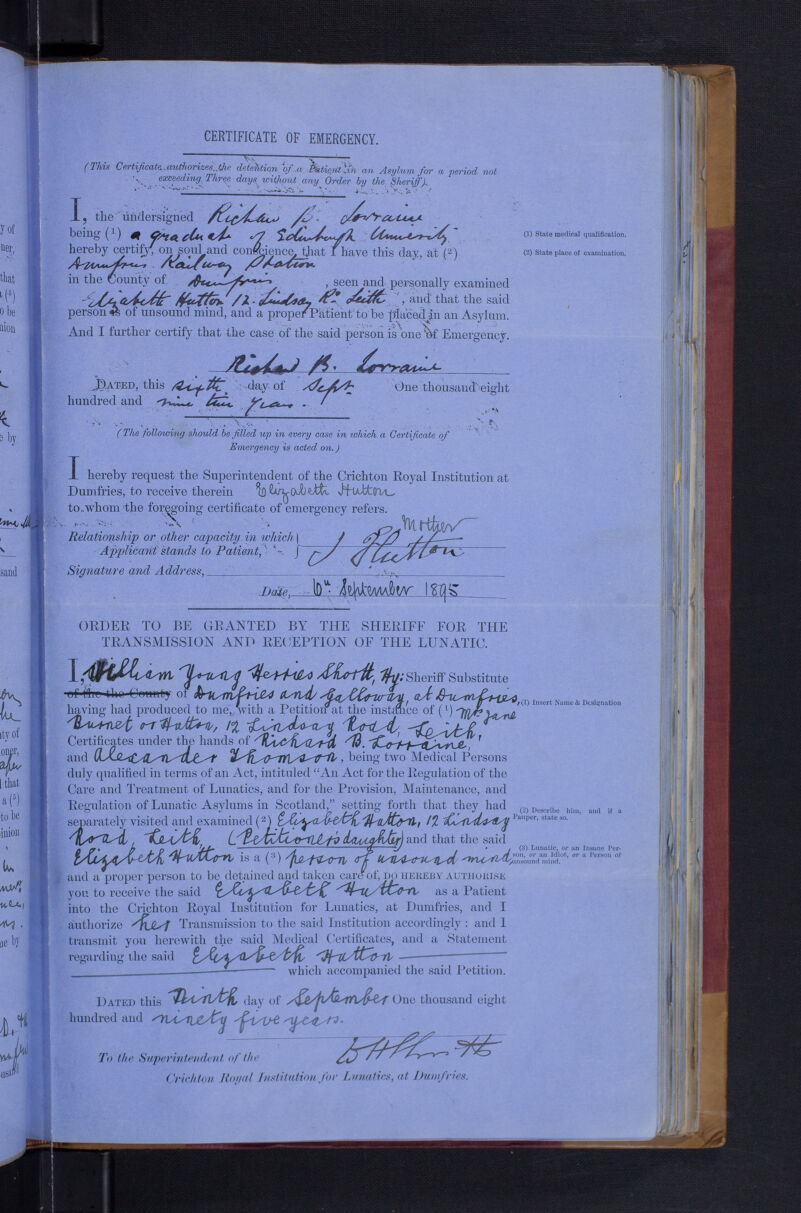 CERTIFICATE OF EMERGENCY.
(This Certificate authorizes the detention of a Patient in an Asylum for a period not
exceeding Three days without any Order by the Sheriff).
I, the undersigned Richard B. Lorraine
being (1) a graduate of Edinburgh University
hereby certify, on soul and conscience, that I have this day, at (2)
Dumfries Railway Station
in the County of Dumfries, seen and personally examined
Elizabeth Hutton 12 Lindsay Rd Leith, and that the said
person is of unsound mind, and a proper Patient to be placed in an Asylum.
And I further certify that the case of the said person is one of Emergency.
Richard B. Lorraine
DATED, this sixth day of Sept One thousand eight
hundred and nine five years.
(1) State medical qualification.
(2) State place of examination.
(The following should be filled up in every case in which a Certificate of
Emergency is acted on.)
I hereby request the Superintendent of the Crichton Royal Institution at
Dumfries, to receive therein Elizabeth Hutton
to whom the foregoing certificate of emergency refers.
Relationship or other capacity in which
Applicant stands to Patient, Mother
Signature and Address, J Hutton
Date, 6th September 1895
ORDER TO BE GRANTED BY THE SHERIFF FOR THE
TRANSMISSION AND RECEPTION OF THE LUNATIC.
I, William Young Herries Shortt, Hy: Sheriff Substitute
of the County of Dumfries and Galloway, at Dumfries,
having had produced to me, with a Petition at the instance of (1) Mrs Jane
Burnet or Hutton, 12 Lindsay Road, Leith,
Certificates under the hands of Richard B. Lorraine,
and Alexander Thomson, being two Medical Persons
duly qualified in terms of an Act, intituled "An Act for the Regulation of the
Care and Treatment of Lunatics, and for the Provision, Maintenance, and
Regulation of Lunatic Asylums in Scotland," setting forth that they had
separately visited and examined (2) Elizabeth Hutton, 12 Lindsay
Road, Leith, (Petitioner's daughter) and that the said
Elizabeth Hutton is a (3) person of unsound mind
and a proper person to be detained and taken care of, DO HEREBY AUTHORISE
you to receive the said Elizabeth Hutton as a Patient
into the Crichton Royal Institution for Lunatics, at Dumfries, and I
authorize her Transmission to the said Institution accordingly: and I
transmit you herewith the said Medical Certificates, and a Statement
regarding the said Elizabeth Hutton
which accompanied the said Petition.
DATED this Ninth day of September One thousand eight
hundred and ninety five years.
To the Superintendent of the
Crichton Royal Institution for Lunatics, at Dumfries.
(1) Insert Name & Designation
(2) Describe him, and if a
Pauper, state so.
(3) Lunatic, or an Insane Per-
son, or an Idiot, or a Person of
unsound mind.